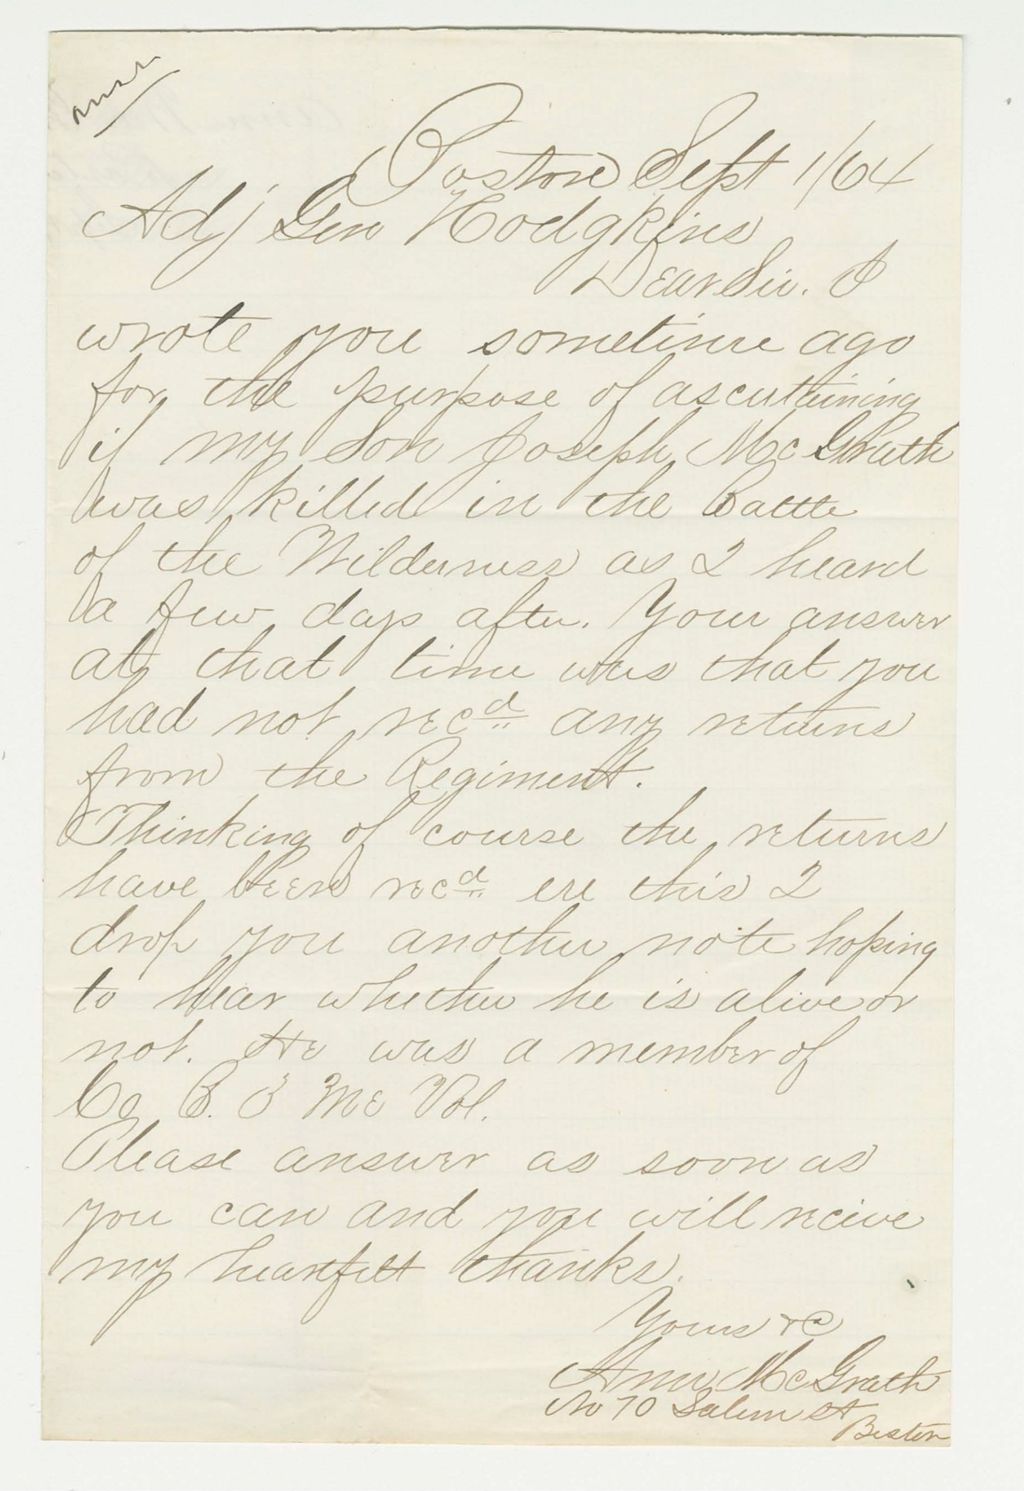 Boston Sept 1/64
Adj Gen Hodgkins
Dear Sir. I
wrote you sometime ago
for the purpose of ascertaining
if my Son Joseph McGrath
was killed in the Battle
of the Wilderness as I heard
a few days after. Your answer
at that time was that you
had not recd any returns
from the Regiment.
Thinking of course the returns
have been recd ere this I
drop you another note hoping
to hear whether he is alive or
not. He was a member of
Co B. 3 Me Vol.
Please answer as soon as
you can and you will recive
my heartfelt thanks.
Yours &c
Ann McGrath
No 70 Salem St
Boston